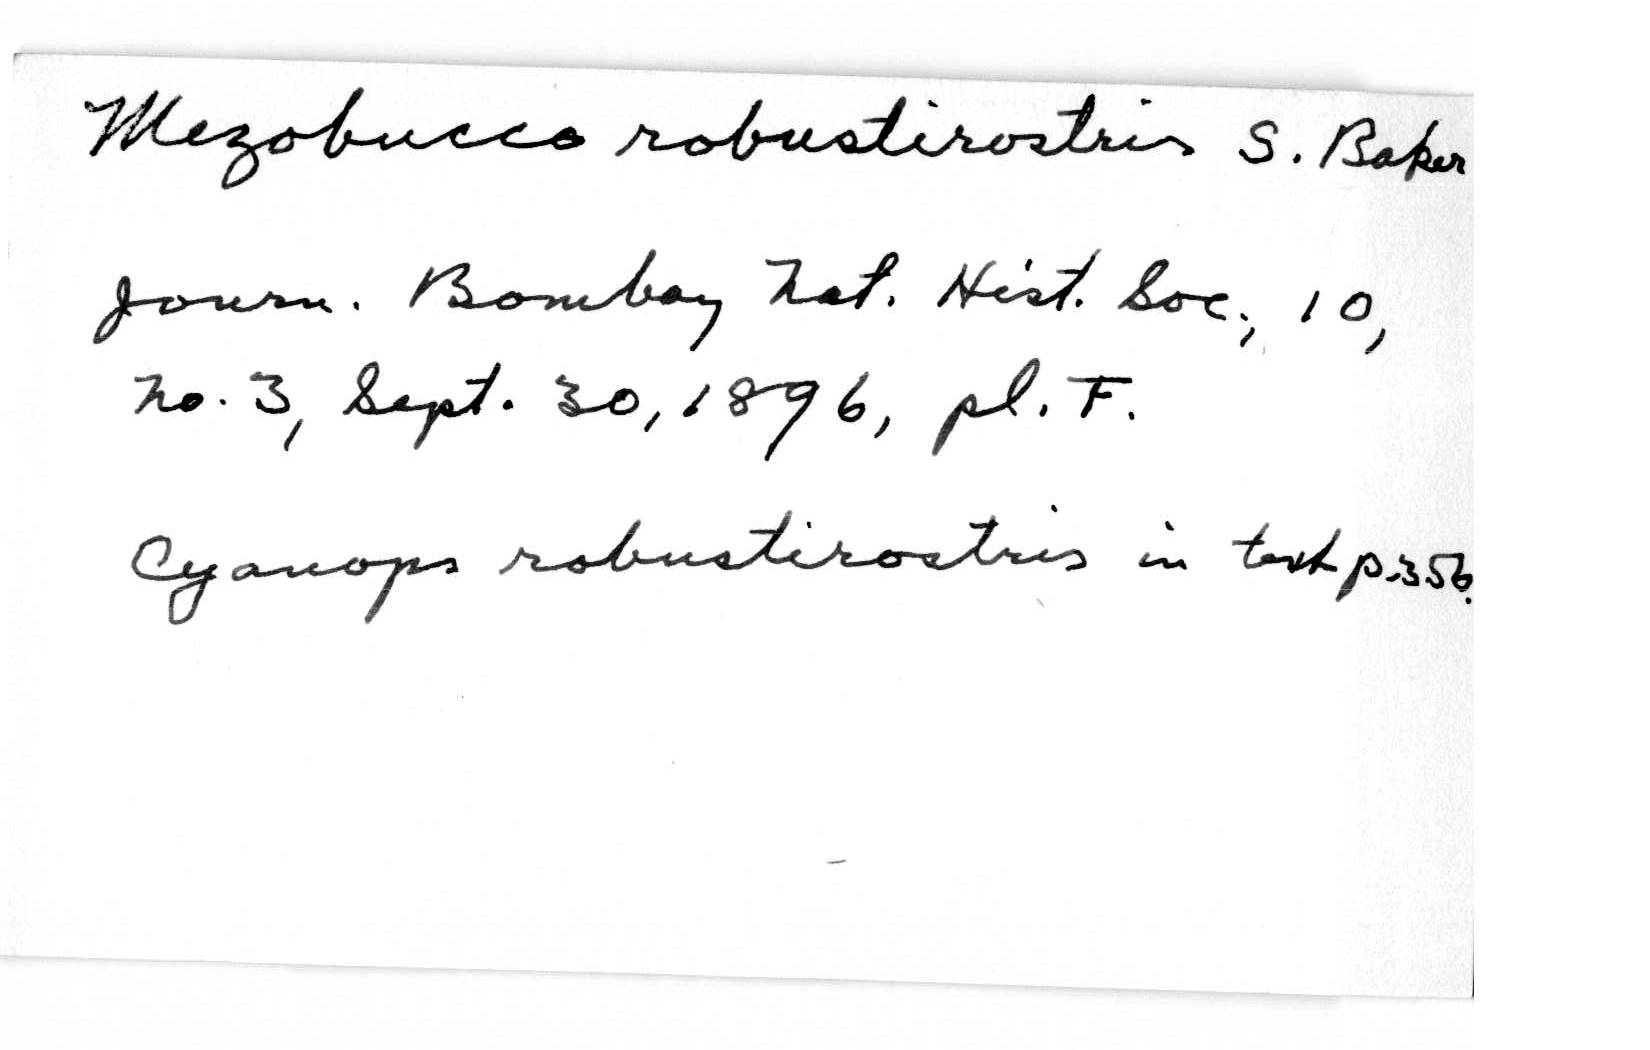 Mezobucco robustirostris S. Baker
Journ. Bombay Nat. Hist. Soc., 10,
no. 3, Sept. 30, 1896, pl. F.
Cyanops robustirostris in text p. 356.